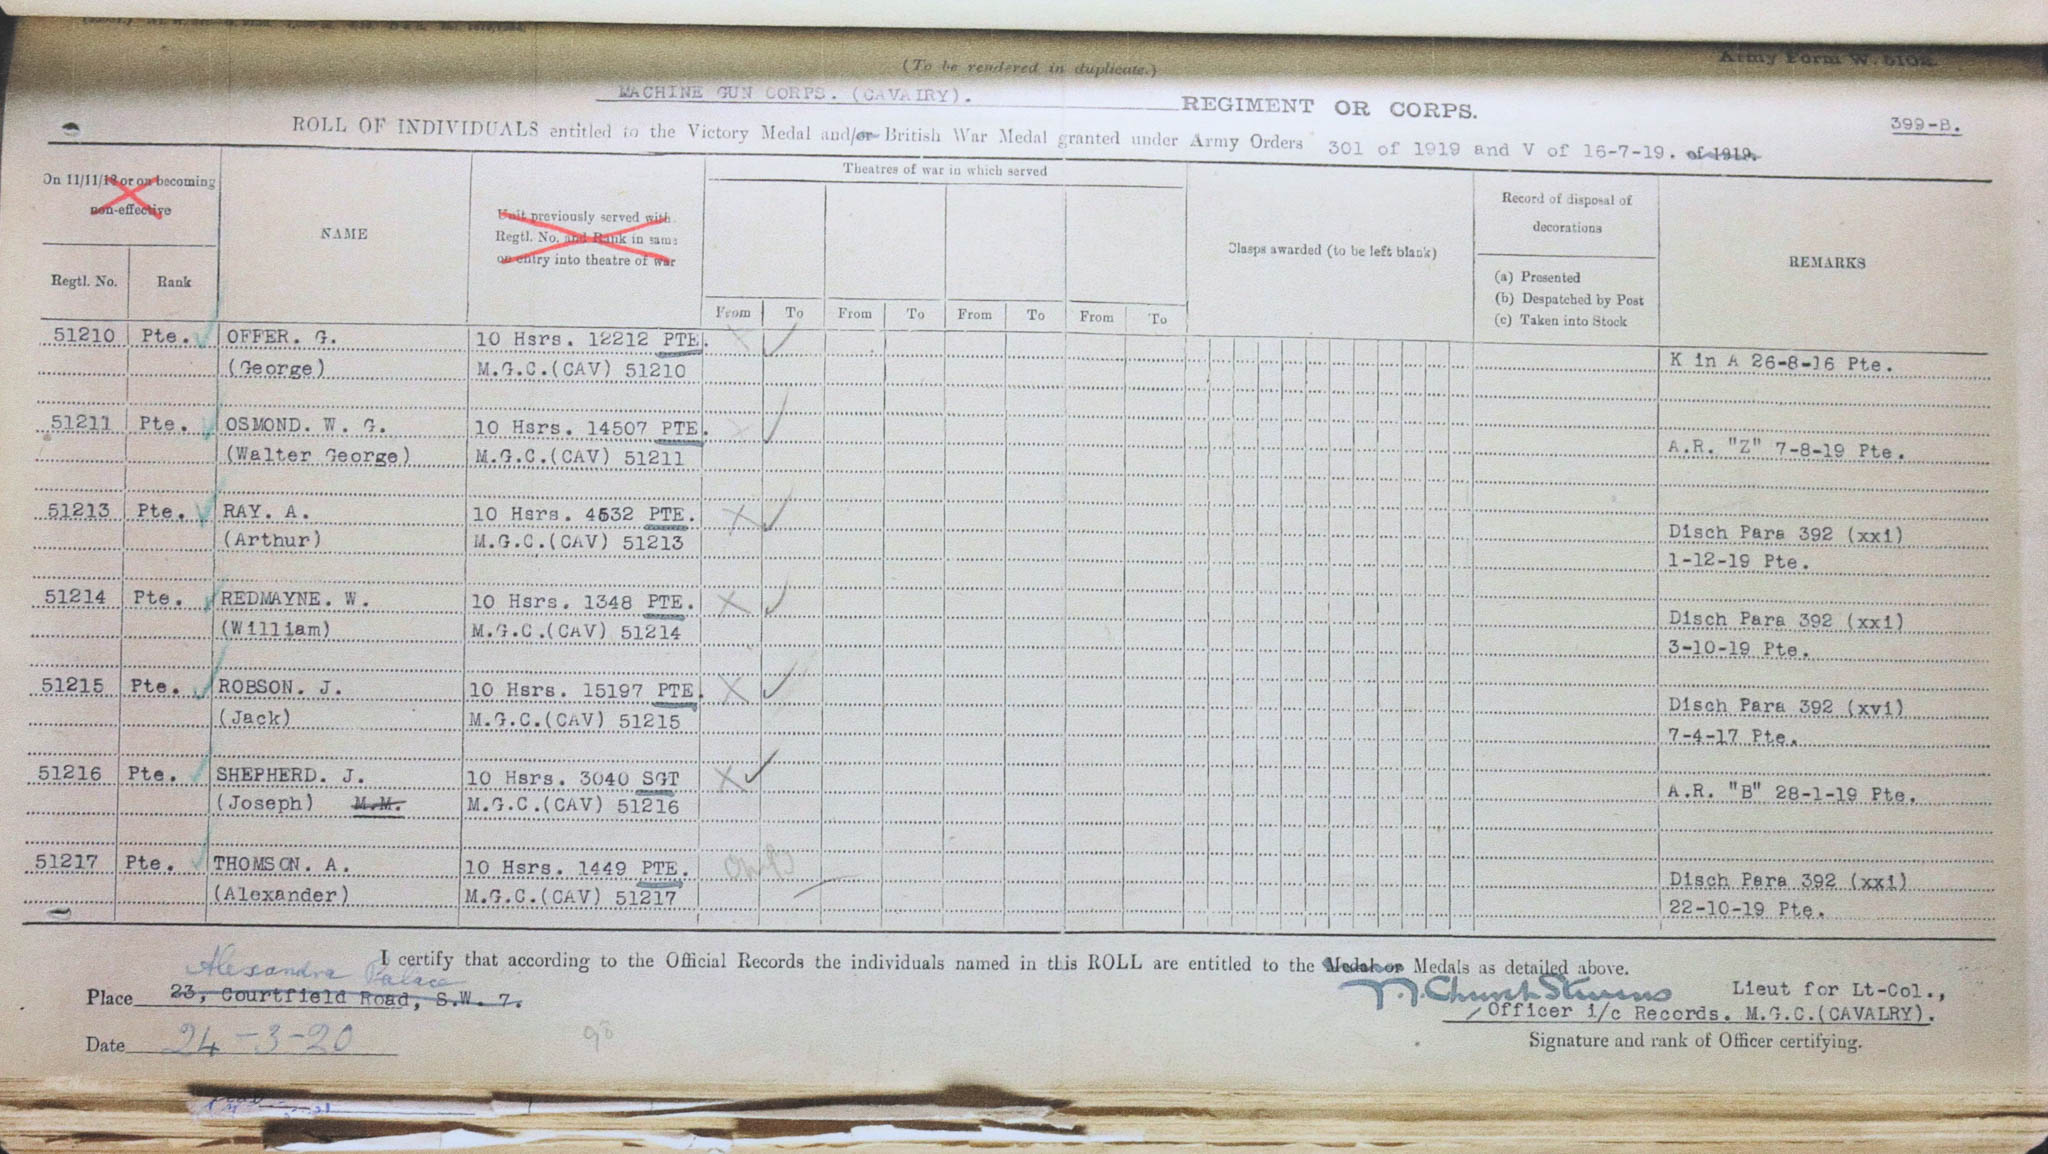 (To be rendered in duplicate.)
Army Form W. 5102.
MACHINE GUN CORPS. (CAVALRY). REGIMENT OR CORPS.
399-B.
ROLL OF INDIVIDUALS entitled to the Victory Medal and/or British War Medal granted under Army Orders 301 of 1919 and V of 16-7-19. of 1919.
On 11/11/18 or on becoming
non-effective
Regtl. No. Rank
NAME
Unit previously served with.
Regtl. No. and Rank in same
on entry into theatre of war
Theatres of war in which served
From To From To From To From To
Clasps awarded (to be left blank)
Record of disposal of
decorations
(a) Presented
(b) Despatched by Post
(c) Taken into Stock
REMARKS
51210 Pte. OFFER. G. 10 Hsrs. 12212 PTE.
(George) M.G.C.(CAV) 51210 K in A 26-8-16 Pte.
51211 Pte. OSMOND. W. G. 10 Hsrs. 14507 PTE.
(Walter George) M.G.C.(CAV) 51211 A.R. "Z" 7-8-19 Pte.
51213 Pte. RAY. A. 10 Hsrs. 4532 PTE.
(Arthur) M.G.C.(CAV) 51213 Disch Para 392 (xxi)
1-12-19 Pte.
51214 Pte. REDMAYNE. W. 10 Hsrs. 1348 PTE.
(William) M.G.C.(CAV) 51214 Disch Para 392 (xxi)
3-10-19 Pte.
51215 Pte. ROBSON. J. 10 Hsrs. 15197 PTE.
(Jack) M.G.C.(CAV) 51215 Disch Para 392 (xvi)
7-4-17 Pte.
51216 Pte. SHEPHERD. J. 10 Hsrs. 3040 SGT
(Joseph) M.M. M.G.C.(CAV) 51216 A.R. "B" 28-1-19 Pte.
51217 Pte. THOMSON. A. 10 Hsrs. 1449 PTE.
(Alexander) M.G.C.(CAV) 51217 Disch Para 392 (xxi)
22-10-19 Pte.
I certify that according to the Official Records the individuals named in this ROLL are entitled to the Medal or Medals as detailed above.
Alexandra Palace
Place 23, Courtfield Road, S.W. 7.
Church Stevens Lieut for Lt-Col.,
Officer i/c Records. M.G.C.(CAVALRY).
Date 24-3-20
98
Signature and rank of Officer certifying.